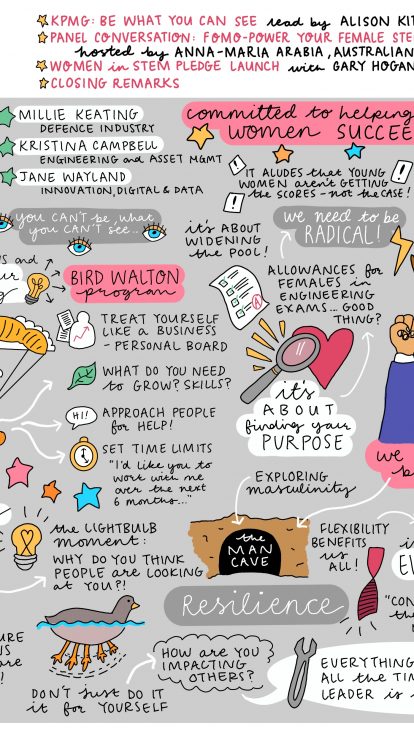 KPMG: BE WHAT YOU CAN SEE read by ALISON KIT
PANEL CONVERSATION: FOMO-POWER YOUR FEMALE STE
hosted by ANNA-MARIA ARABIA, AUSTRALIAN
WOMEN in STEM PLEDGE LAUNCH with GARY HOGAN
CLOSING REMARKS
MILLIE KEATING
DEFENCE INDUSTRY
KRISTINA CAMPBELL
ENGINEERING and ASSET MGMT
JANE WAYLAND
INNOVATION, DIGITAL & DATA
committed to helping
WOMEN SUCCEE
IT ALUDES that YOUNG
WOMEN aren't GETTING
the SCORES - not the CASE!
you CAN'T be what
you CAN'T see...
it's ABOUT
WIDENING
the POOL!
we need to be
RADICAL!
BIRD WALTON
program
ALLOWANCES for
FEMALES in
ENGINEERING
EXAMS... GOOD
THING?
TREAT YOURSELF
LIKE A BUSINESS
- PERSONAL BOARD
WHAT DO YOU NEED
to GROW? SKILLS?
HI!
APPROACH PEOPLE
for HELP!
SET TIME LIMITS
"I'd like you to
work with me
over the next
6 months..."
it's
ABOUT
finding your
PURPOSE
EXPLORING
masculinity
the LIGHTBULB
moment:
WHY DO YOU THINK
PEOPLE are LOOKING
at YOU?!
the
MAN
CAVE
FLEXIBILITY
BENEFITS
us
ALL!
Resilience
HOW are YOU
IMPACTING
OTHERS?
DON'T just DO IT
it for YOURSELF
EVERYTHING
ALL the TIM
LEADER is